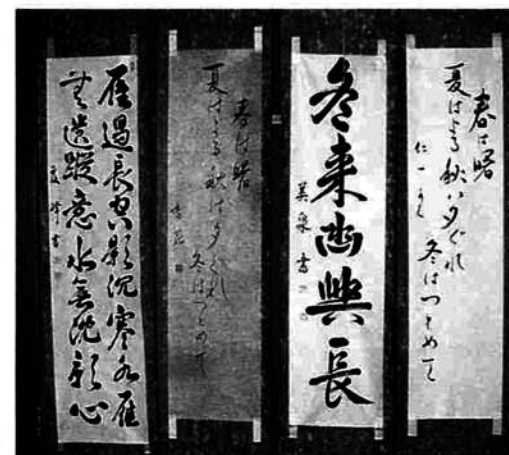 春は曙
夏はよる 秋は夕ぐれ
冬はつとめて
冬来幽興長
春は曙
夏はよる 秋は夕ぐれ
冬はつとめて
雁過長空影沈寒水雁
無遺蹤意水無沈影心